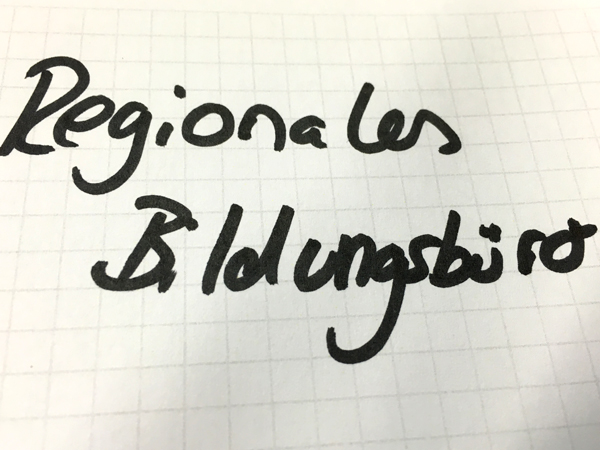 Regionales
Bildungsbüro